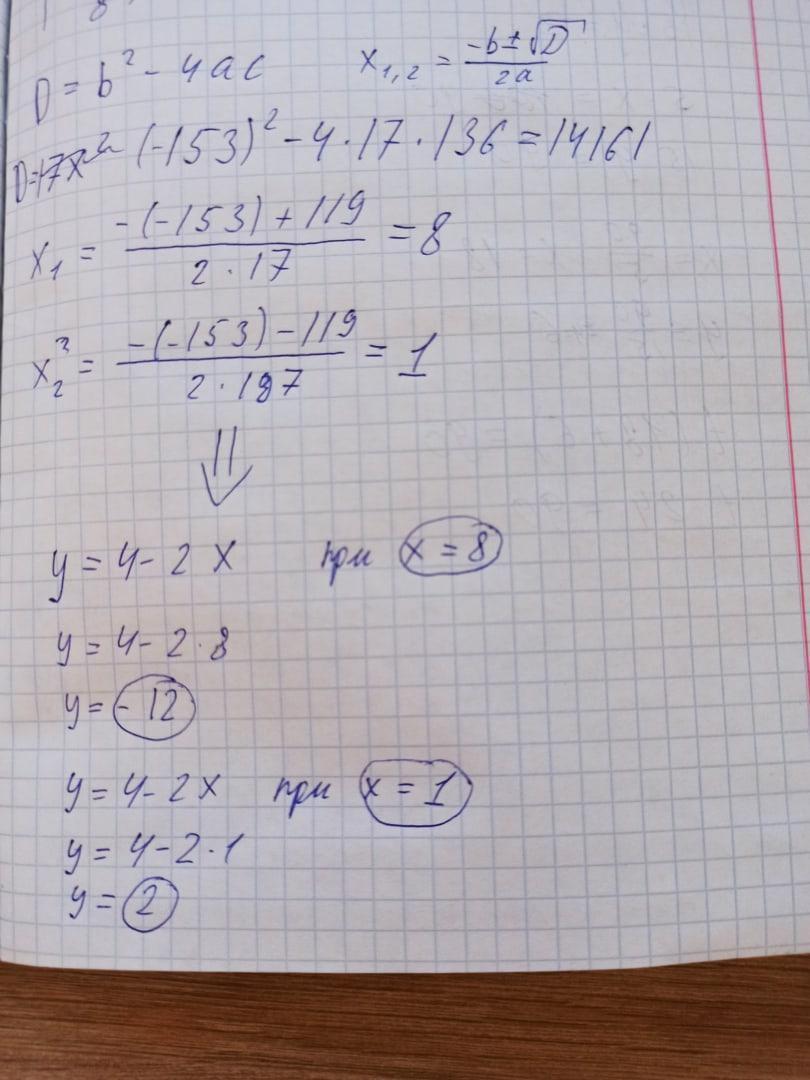 8
D = b² - 4ac x₁,₂ = (-b ± √D)/(2a)
D = (-153)² - 4·17·136 = 14161
x₁ = (-(-153) + 119)/(2·17) = 8
x₂ = (-(-153) - 119)/(2·17) = 1
⇓
y = 4 - 2x при x = 8
y = 4 - 2·8
y = -12
y = 4 - 2x при x = 1
y = 4 - 2·1
y = 2